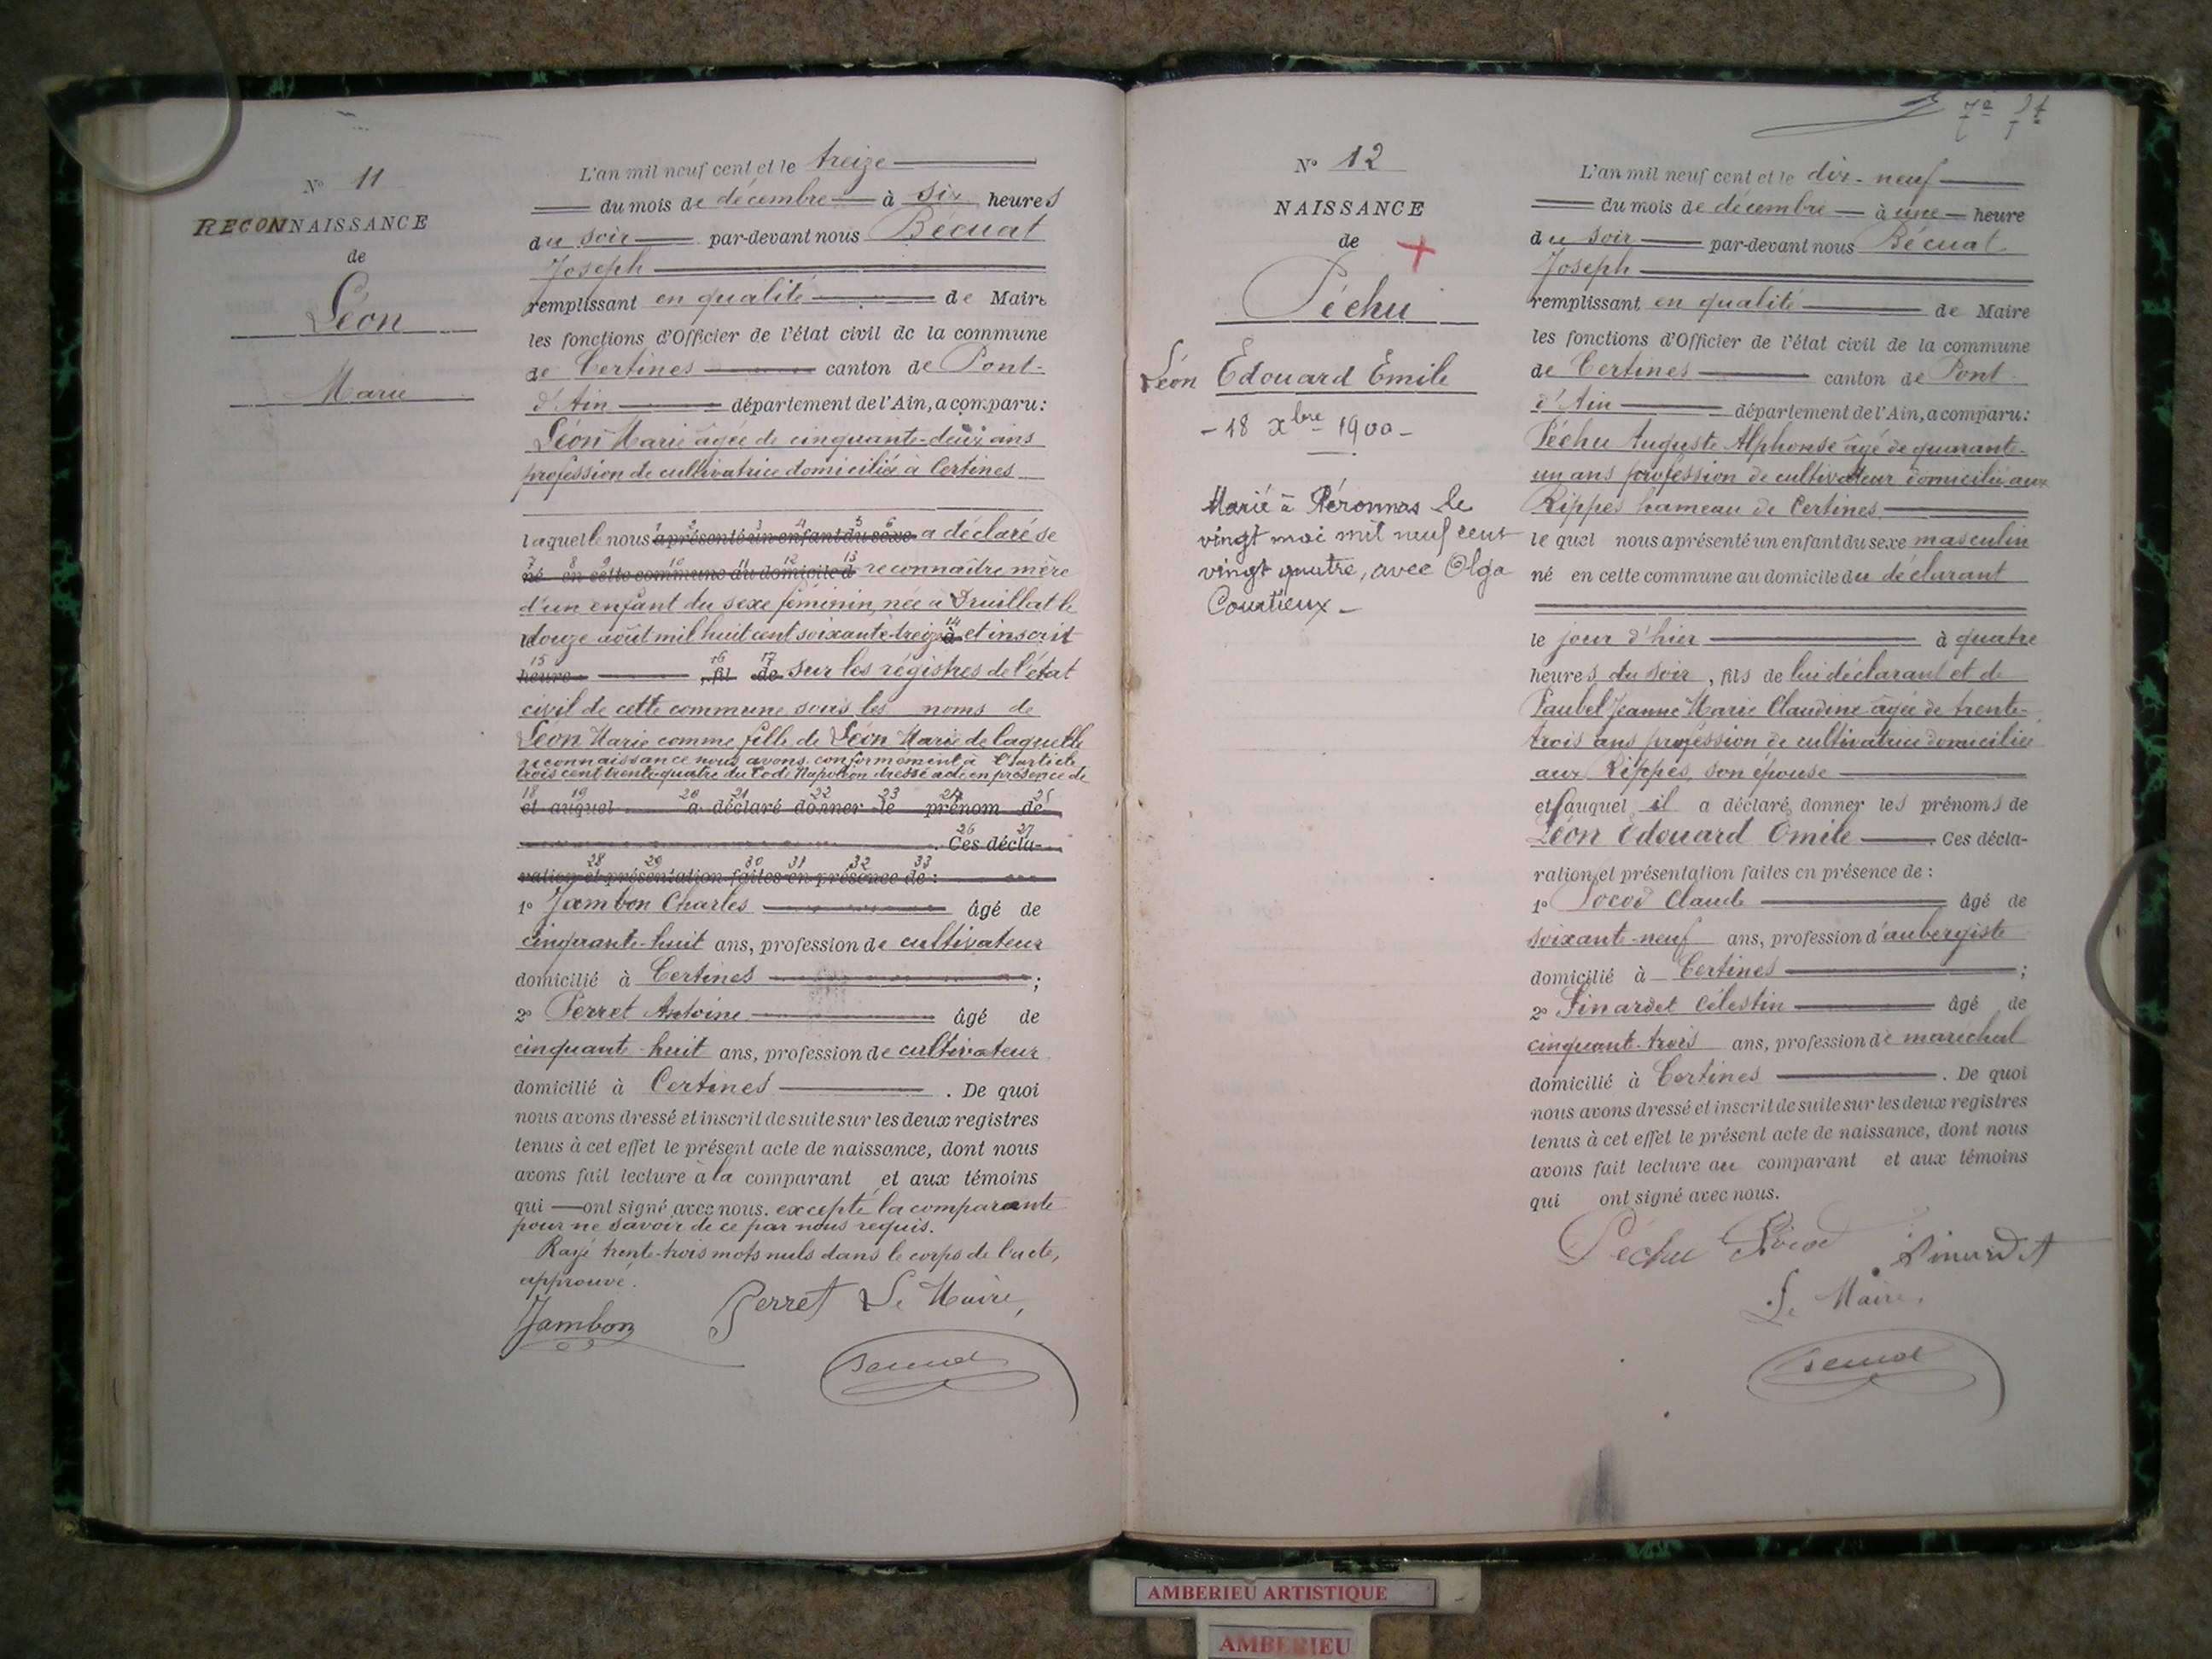 N° 11
RECONNAISSANCE
de
Léon
Marie
L'an mil neuf cent et le treize
du mois de décembre à six heures
du soir par-devant nous Bécuat
Joseph
remplissant en qualité de Maire
les fonctions d'Officier de l'état civil de la commune
de Certines canton de Pont-
d'Ain département de l'Ain, a comparu:
Léon Marie âgée de cinquante-deux ans
profession de cultivatrice domiciliée à Certines
laquelle nous a présenté un enfant du sexe a déclaré se
né en cette commune au domicile d reconnaître mère
d'un enfant du sexe féminin, née à Druillat le
douze août mil huit cent soixante-treize à et inscrit
heure fil de sur les régistres de l'état
civil de cette commune sous les noms de
Léon Marie comme fille de Léon Marie de laquelle
reconnaissance nous avons, conformément à l'article
trois cent trente-quatre du Code Napoléon dressé acte en présence de
et auquel a déclaré donner le prénom de
Ces décla-
ration et présentation faites en présence de :
1° Jambon Charles âgé de
cinquante-huit ans, profession de cultivateur
domicilié à Certines ;
2° Perret Antoine âgé de
cinquant-huit ans, profession de cultivateur
domicilié à Certines . De quoi
nous avons dressé et inscrit de suite sur les deux registres
tenus à cet effet le présent acte de naissance, dont nous
avons fait lecture à la comparant et aux témoins
qui ont signé avec nous. excepté la comparante
pour ne savoir de ce par nous requis.
Rayé trente-trois mots nuls dans le corps de l'acte,
approuvé.
Jambon Perret Le Maire,
N° 12
NAISSANCE
de
Péchu
Léon Edouard Emile
- 18 Xbre 1900 -
Marié à Péronnas le
vingt mai mil neuf cent
vingt quatre, avec Olga
Courtieux -
L'an mil neuf cent et le dix-neuf
du mois de décembre à une heure
du soir par-devant nous Bécuat
Joseph
remplissant en qualité de Maire
les fonctions d'Officier de l'état civil de la commune
de Certines canton de Pont-
d'Ain département de l'Ain, a comparu:
Péchu Auguste Alphonse âgé de quarante-
un ans profession de cultivateur domicilié aux
Rippes hameau de Certines
lequel nous a présenté un enfant du sexe masculin
né en cette commune au domicile du déclarant
le jour d'hier à quatre
heures du soir, fils de lui déclarant et de
Paubel Jeanne Marie Claudine âgée de trente-
trois ans profession de cultivatrice domiciliée
aux Rippes, son épouse
et auquel il a déclaré donner les prénoms de
Léon Edouard Emile . Ces décla-
ration et présentation faites en présence de :
1° Pocod Claude âgé de
soixante-neuf ans, profession d'aubergiste
domicilié à Certines ;
2° Sinardet Célestin âgé de
cinquant-trois ans, profession de maréchal
domicilié à Certines . De quoi
nous avons dressé et inscrit de suite sur les deux registres
tenus à cet effet le présent acte de naissance, dont nous
avons fait lecture au comparant et aux témoins
qui ont signé avec nous.
Péchu Pocod Sinardet
Le Maire,
AMBERIEU ARTISTIQUE
AMBERIEU